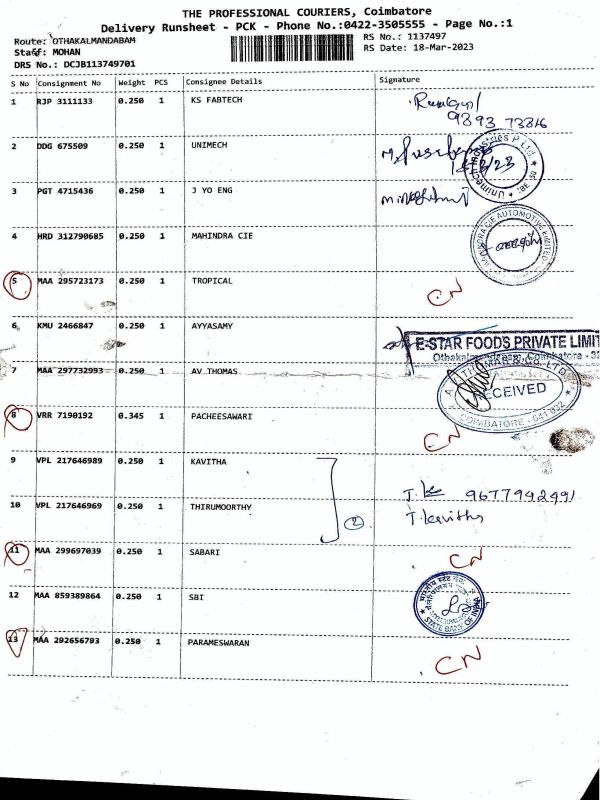 THE PROFESSIONAL COURIERS, Coimbatore
Delivery Runsheet - PCK - Phone No.:0422-3505555 - Page No.:1
Route: OTHAKALMANDABAM
RS No.: 1137497
Staff: MOHAN
RS Date: 18-Mar-2023
DRS No.: DCJB113749701
S No Consignment No Weight PCS Consignee Details Signature
1 RJP 3111133 0.250 1 KS FABTECH
9893 73816
2 DDG 675509 0.250 1 UNIMECH
3 PGT 4715436 0.250 1 J YO ENG
4 HRD 312790685 0.250 1 MAHINDRA CIE
5 MAA 295723173 0.250 1 TROPICAL CN
6 KMU 2466847 0.250 1 AYYASAMY
E-STAR FOODS PRIVATE LIMIT
7 MAA 297732993 0.250 1 AV THOMAS
RECEIVED
COIMBATORE - 641
8 VRR 7190192 0.345 1 PACHEESAWARI CN
9 VPL 217646989 0.250 1 KAVITHA
9677942491
10 VPL 217646969 0.250 1 THIRUMOORTHY
2 T. kavitha
11 MAA 299697039 0.250 1 SABARI CN
12 MAA 859389864 0.250 1 SBI
STATE BANK OF INDIA
13 MAA 292656793 0.250 1 PARAMESWARAN CN